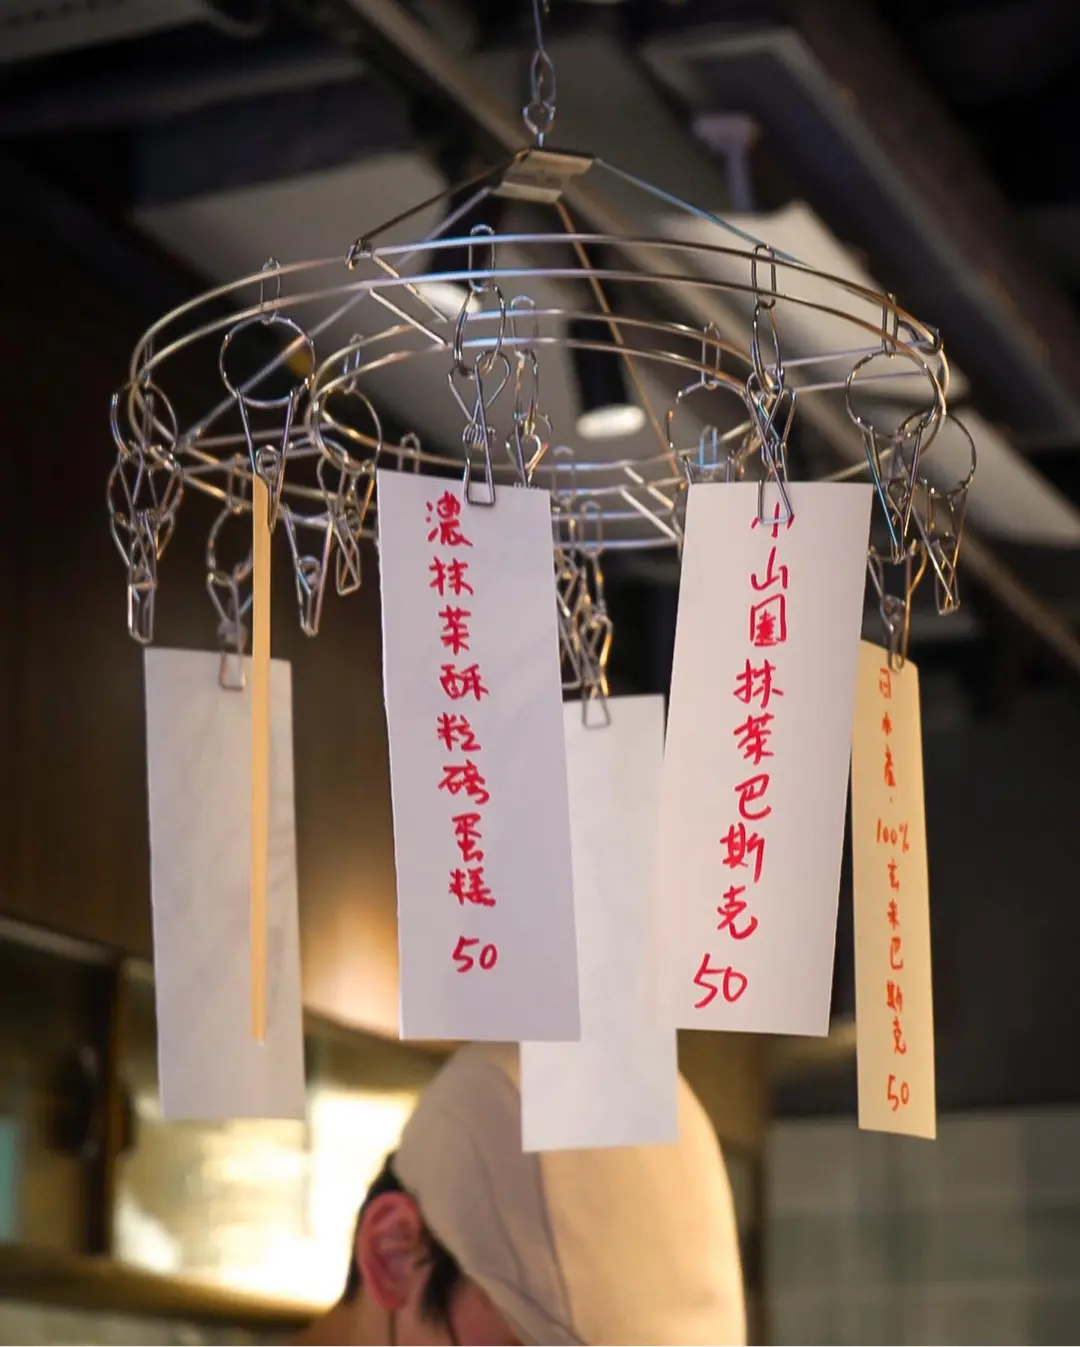 濃抹茶酥粒磅蛋糕
50
小山園抹茶巴斯克
50
日本產·100%玄米巴斯克
50